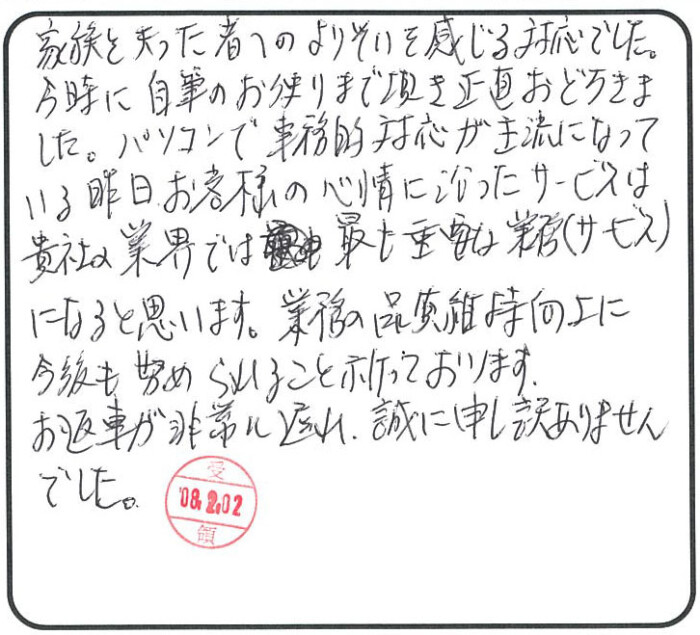 家族を失った者へのよりそいを感じる対応でした。
今時に自筆のお便りまで頂き正直おどろきま
した。パソコンで事務的対応が主流になって
いる昨日、お客様の心情に沿ったサービスは
貴社の業界では 最も重要な業務(サービス)
になると思います。業務の品質維持向上に
今後も努められること祈っております。
お返事が非常に遅れ、誠に申し訳ありません
でした。
受
'08.2.02
領